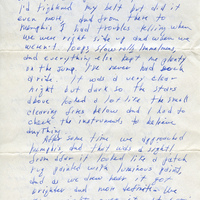 I'd tightened my belt but did it
even more, and from there to
Memphis I had trouble telling when
we were right side up and when we
weren't. Loops, Immelmanns,
and everything else kept me plenty
on the jump. I've never had such
a ride. It was a very clear
night but dark so the stars
above looked a lot like the small
clearing fires below and I had to
check the instruments to
anything.
After some time we approached
Memphis, and that was a sight!
From afar it looked like a patch
rug painted with luminous points,
and as we drew near it got
brighter and more definite. We